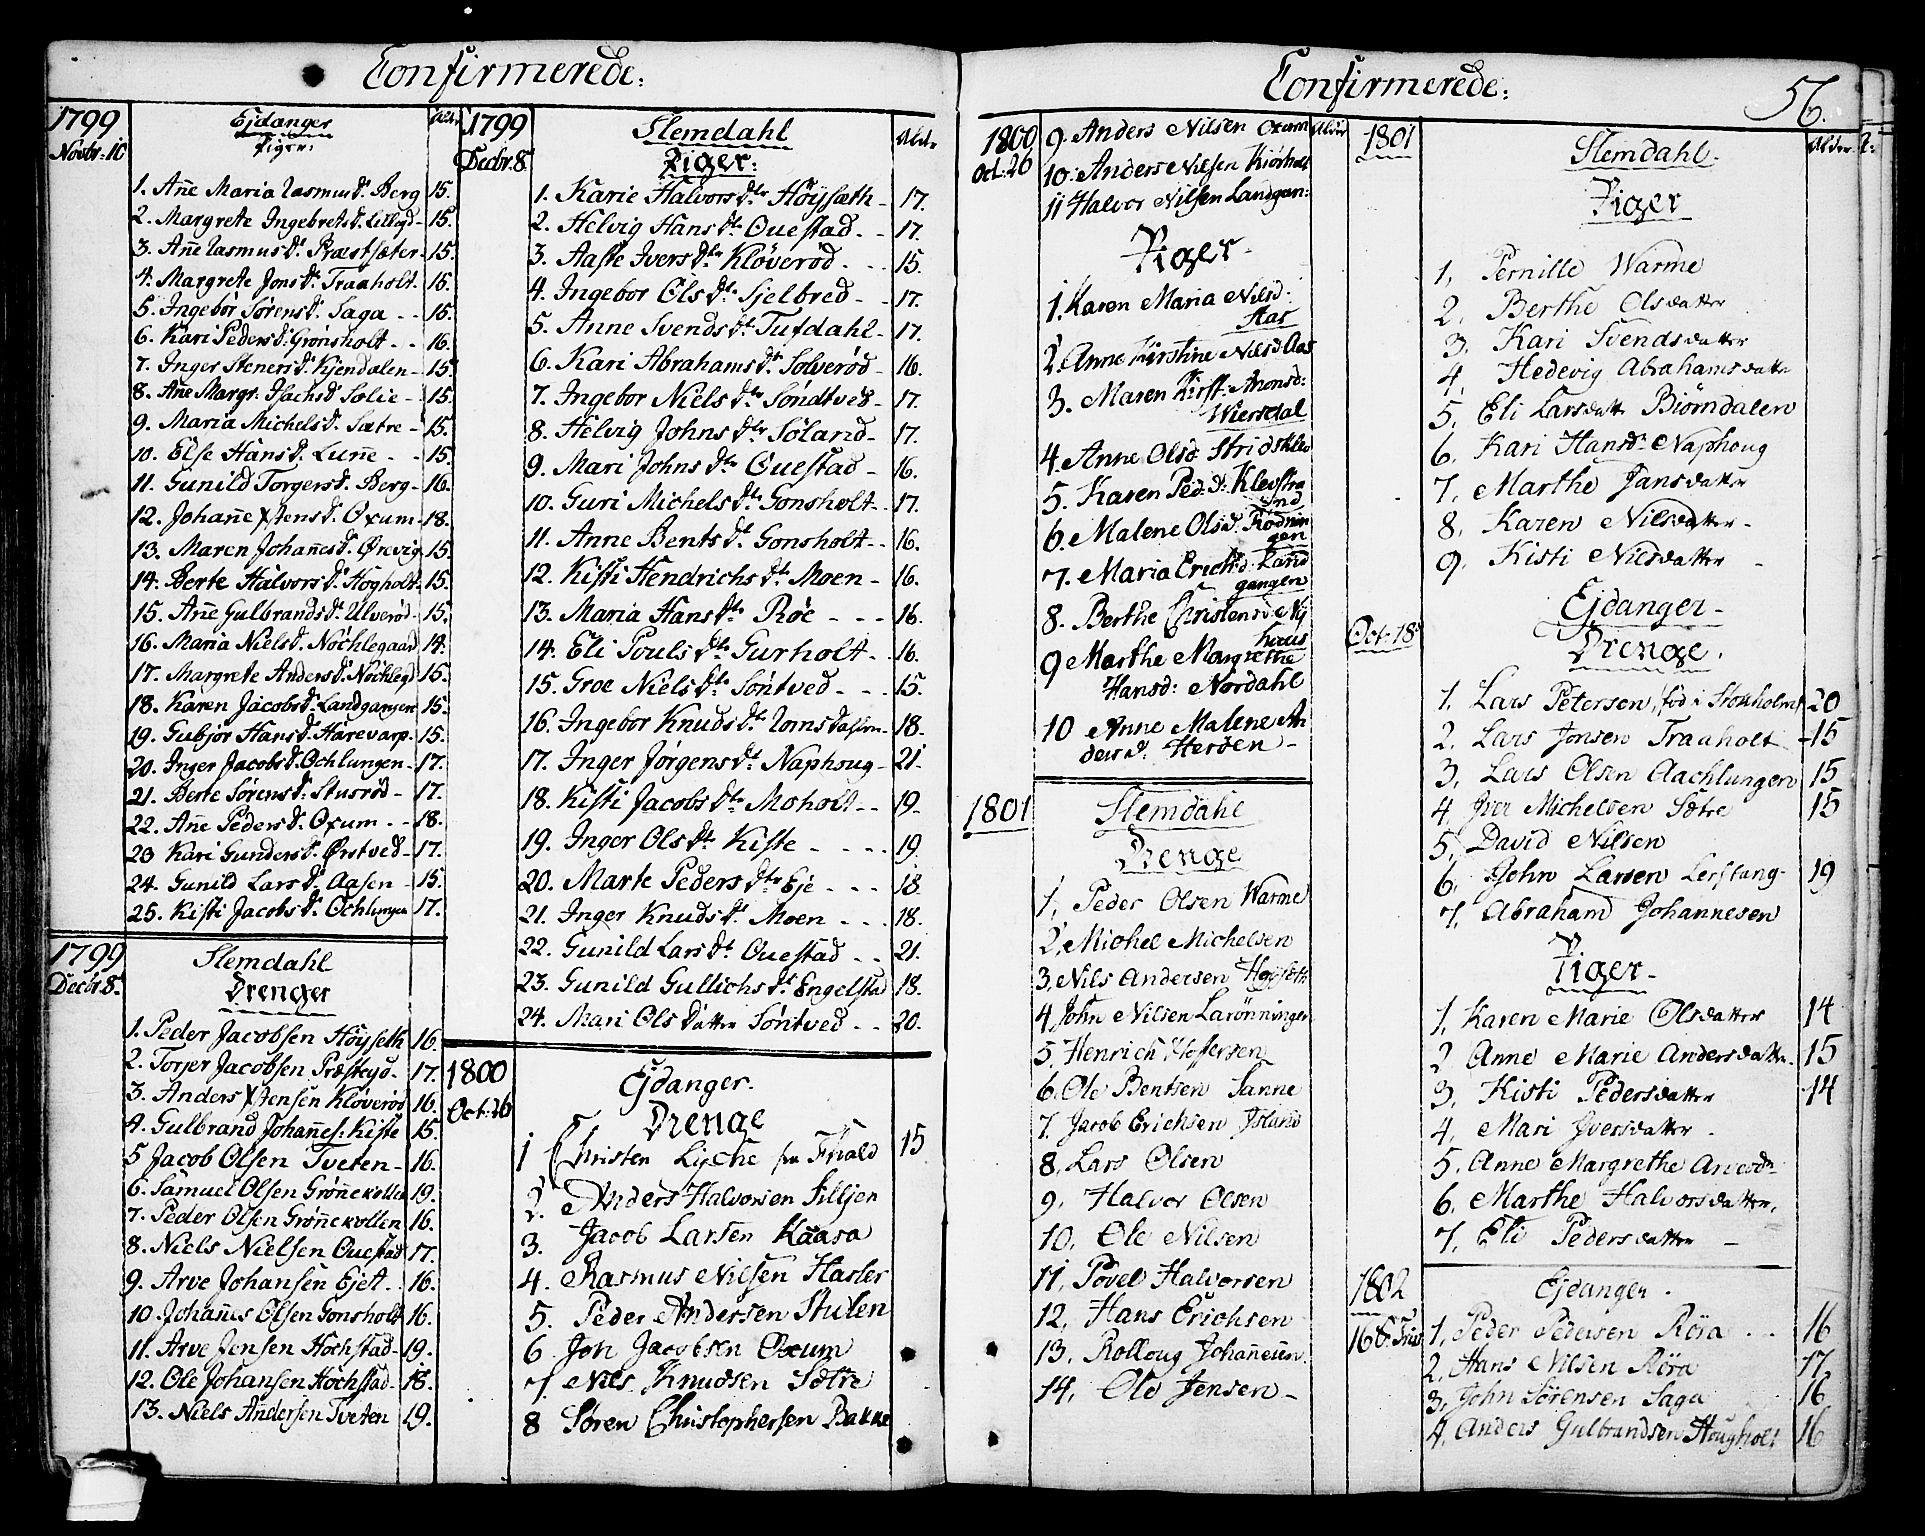 Confirmerede:
1799
Novbr: 10
Ejdanger
Piger:
Ald:
1. Añe Maria Rasmusd: Berg 15.
2. Margrete Ingebretsd: 15.
3. Añe Rasmusd: Præstsæter - 15.
4. Margrete Jonsd: Traaholt. 16.
5. Ingebor Sørensd: Saga - - 16.
6. Kari Pedersd: Grønsholt - - 16.
7. Inger Stenersd: Kjendalen - 15.
8. Añe Margr. Isachsd: Solie - 15.
9. Maria Michelsd: Sætre - 15.
10. Else Hansd: Luñe - - 15.
11. Gunild Torgersd: Berg - 16.
12. Johañe Xstensd: Oxum - 18.
13. Maren Johañesd: Ørevig 15.
14. Berte Halvorsd: Høgholt 15.
15. Añe Gulbrandsd: Ulverød - 15.
16. Maria Nielsd: Nochlegaad 14.
17. Margrete Andersd: Nochlegd 15.
18. Karen Jacobsd: Landgangen 15.
19. Gubjor Hansd: Harevarp - 15.
20. Inger Jacobsd: Ochlungen - 17.
21. Berte Sørensd: Stusrød - 17.
22. Añe Pedersd: Oxum - - 18.
23 Kari Gundersd: Ørstved - 17.
24. Gunild Larsd: Aasen - 15.
25. Kisti Jacobsd: Ochlungen 17.
1799
Decbr 8.
Slemdahl
Drenger
1. Peder Jacobsen Høyseth 16.
2. Torjer Jacobsen Præstejd - 17.
3. Anders Xstensen Kløverød 16.
4. Gulbrand Johañes: Kiste 15.
5 Jacob Olsen Tveten - 16.
6. Samuel Olsen Grøñekollen 19.
7. Peder Olsen Grøñekollen 16.
8. Niels Nielsen Ouestad 17.
9. Arve Johansen Ejet - 16.
10. Johañes Olsen Gonsholt 16.
11. Arve Jensen Hochstad - 19.
12. Ole Johansen Hochstad - 18.
13. Niels Andersen Tveten 19.
1799
Decbr. 8
Slemdahl
Piger:
Aldr
1. Karie Halvors Dtr Høysæth - 17.
2. Helvig Hans Dtr Ouestad - - 17.
3. Aaste Ivers Dtr Kløverød - - - 15.
4. Ingebor Ols Dtr Sjelbred - - 17.
5. Anne Svends Dtr Tufdahl - 17.
6. Kari Abrahams Dtr Solverød - 16.
7. Ingebor Niels Dtr Søndtved - 17.
8. Helvig Johns Dtr Søland - 17.
9. Mari Johns Dtr Ouestad - 16.
10. Guri Michels Dtr Gonsholt - - 17.
11. Anne Bents Dtr Gonsholt - - 16.
12. Kisti Hendrichs Dtr Moen - 16.
13. Maria Hans Dtr Røe - - - 16.
14. Eli Pouls Dtr Gurholt - - 16.
15. Groe Niels Dtr Søntved - - - 15.
16. Ingebor Knuds Dtr - 18.
17. Inger Jørgens Dtr Naphoug - 21.
18. Kisti Jacobs Dtr Moholt - - 19.
19. Inger Ols Dtr Kiste - - - - 19
20. Marte Peders Dtr Eje - - - 18.
21. Inger Knuds Dtr Moen - - - 18.
22. Gunild Lars Dtr Ouestad - - 21.
23. Gunild Gullichs Dtr Engelstad 18.
24. Mari Ols Datter Søntved - - 20.
1800
Oct: 26
Ejdanger.
Drenge
1 Christen Lyche 15
2. Anders Halvorsen Tilljen
3. Jacob Larsen Kaasa
4. Rasmus Nilsen Hasler
5. Peder Andersen Stulen
6 Jon Jacobsen Oxum
7 Nils Knudsen Sætre
8 Søren Christophersen Bakke
Confirmerede:
56.
1800
Oct: 26
Alder
9. Anders Nilsen Oxum
10. Anders Nilsen Kiørholt
11 Halvor Nilsen Landgan:
Piger -
1. Karen Maria Nilsd:
Aas
2. Anne Kirstine Nilsd Aas
3. Maren Kirst: Amonsd:
Wiersdal
4. Anne Olsd Stridsklev
5. Karen Ped: d: Klevstra
nd
6. Malene Olsd: Rodnin
gen
7. Maria Erichsd: Land
gangen
8. Berthe Christensd Ny
huus
9 Marthe Margrethe
Hansd: Nordahl
10 Anne Malene An
dersd: Herøen -
1801
Slemdahl
Drenge
1, Peder Olsen Warme
2, Michel Michelsen
3, Nils Andersen Høyseth
4, John Nilsen Larønningen
5. Henrich
6. Ole Bentsen Sanne
7. Jacob Erichsen Island
8. Lars Olsen
9. Halvor Olsen
10. Ole Nilsen
11. Povel Halvorsen
12. Hans Erichsen
13. Rolloug Johañesen
14. Ole Jensen -
1801
Slemdahl.
Alder
Piger
1, Pernille Warme
2. Berthe Olsdatter
3. Kari Svendsdatter
4. Hedevig Abrahamsdatter
5. Eli Larsdattr Biørndalen
6. Kari Hansd: Naphoug
7. Marthe Jansdatter
8. Karen Nilsdatter -
9. Kisti Nilsdatter -
Oct: 18
Ejdanger -
Drenge.
1. Lars Petersen, (fød i Stokholm) 20
2. Lars Jonsen Traaholt - 15
3, Lars Olsen Aachlungen 15
4. Iver Michelsen Sætre 15
5, David Nilsen
6. John Larsen Lerstang - 19
7. Abraham Johannesen
Piger -
1, Karen Marie Olsdatter 14
2 Anne Marie Andersdatter - 15
3, Kisti Pedersdatter 14
4, Mari Iversdatter -
5. Anne Margrethe
6. Marthe Halvorsdatter.
7. Eli Pedersdatter -
1802
Ejdanger.
1, Peder Pedersen Røra - - 16
2. Hans Nilsen Røra 17
3, John Sørensen Saga 16
4, Anders Gulbrandsen Hougholt 16